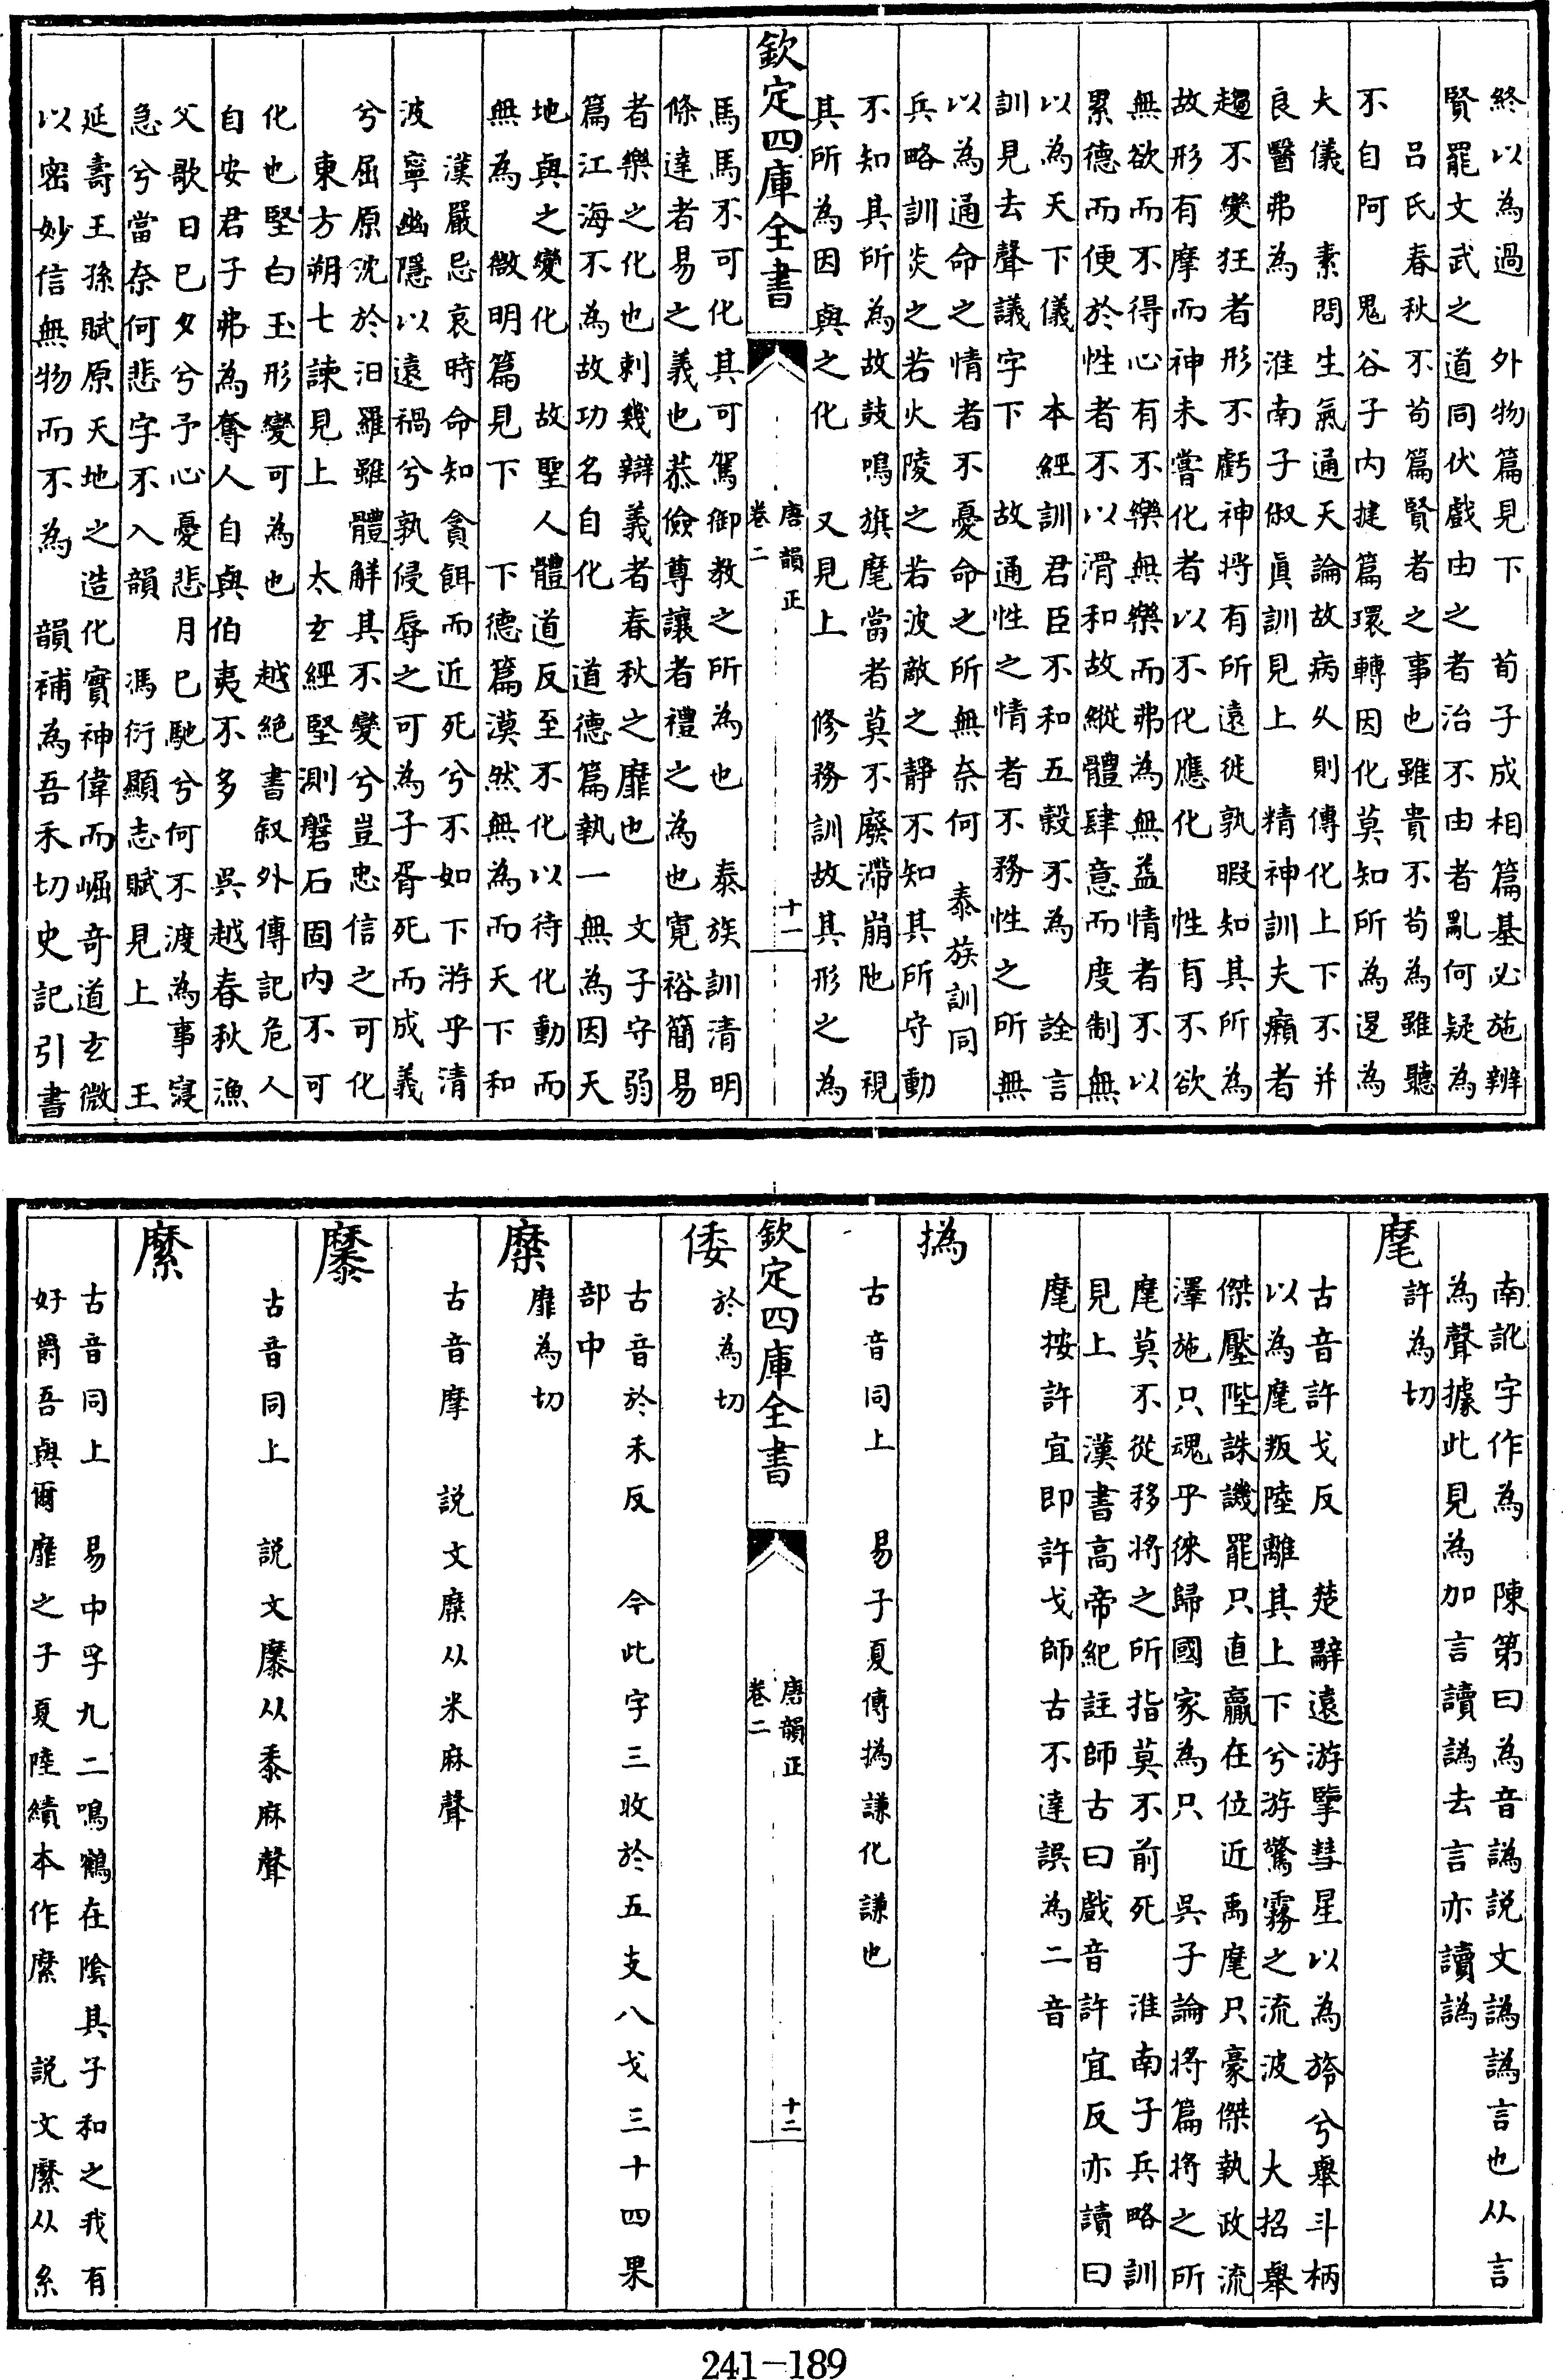 終以為過　外物篇見下　荀子成相篇基必施辨
賢罷文武之道同伏戲由之者治不由者亂何疑為
　呂氏春秋不苟篇賢者之事也雖貴不苟為雖聽
不自阿　鬼谷子内揵篇環轉因化莫知所為退為
大儀　素問生氣通天論故病乆則傳化上下不并
良醫弗為　淮南子俶真訓見上　精神訓夫癩者
趨不變狂者形不虧神将有所遠徙孰暇知其所為
故形有摩而神未嘗化者以不化應化　性有不欲
無欲而不得心有不樂無樂而弗為無益情者不以
累德而便於性者不以滑和故縱體肆意而度制無
以為天下儀　本經訓君臣不和五穀不為　詮言
訓見去聲議字下　故通性之情者不務性之所無
以為通命之情者不憂命之所無奈何　泰族訓同
兵略訓炎之若火陵之若波敵之靜不知其所守動
不知其所為故鼓鳴旗麾當者莫不廢滯崩阤　視
其所為因與之化　又見上　修務訓故其形之為
欽定四庫全書
唐韻正
卷二
十一
馬馬不可化其可駕御教之所為也　泰族訓清明
條達者易之義也恭儉尊讓者禮之為也寛裕簡易
者樂之化也刺幾辯義者春秋之靡也　文子守弱
篇江海不為故功名自化　道德篇執一無為因天
地與之變化　故聖人體道反至不化以待化動而
無為　微明篇見下　下德篇漠然無為而天下和
　漢嚴忌哀時命知貪餌而近死兮不如下游乎清
波寧幽隱以遠禍兮孰侵辱之可為子胥死而成義
兮屈原沈於汨羅雖體解其不變兮豈忠信之可化
　東方朔七諫見上　太玄經堅測磐石固内不可
化也堅白玉形變可為也　越絶書叙外傳記危人
自安君子弗為奪人自與伯夷不多　吳越春秋漁
父歌日已夕兮予心憂悲月已馳兮何不渡為事寖
急兮當奈何悲字不入韻　馮衍顯志賦見上　王
延壽王孫賦原天地之造化實神偉而崛奇道玄微
以密妙信無物而不為　韻補為吾禾切史記引書
南訛字作為　陳第曰為音譌説文譌譌言也从言
為聲據此見為加言讀譌去言亦讀譌
麾
許為切
古音許戈反　楚辭遠游擥彗星以為旍兮舉斗柄
以為麾叛陸離其上下兮游驚霧之流波　大招舉
傑壓陛誅譏罷只直贏在位近禹麾只豪傑執政流
澤施只魂乎徠歸國家為只　吳子論將篇將之所
麾莫不從移將之所指莫不前死　淮南子兵略訓
見上　漢書高帝紀註師古曰戲音許宜反亦讀曰
麾按許宜即許戈師古不達誤為二音
撝
古音同上　易子夏傳撝謙化謙也
欽定四庫全書
唐韻正
卷二
十二
倭
於為切
古音於禾反　今此字三收於五支八戈三十四果
部中
糜
靡為切
古音摩　説文糜从米麻聲
穈
古音同上　説文穈从黍麻聲
縻
古音同上　易中孚九二鳴鶴在陰其子和之我有
好爵吾與爾靡之子夏陸績本作縻　説文縻从糸
241—189